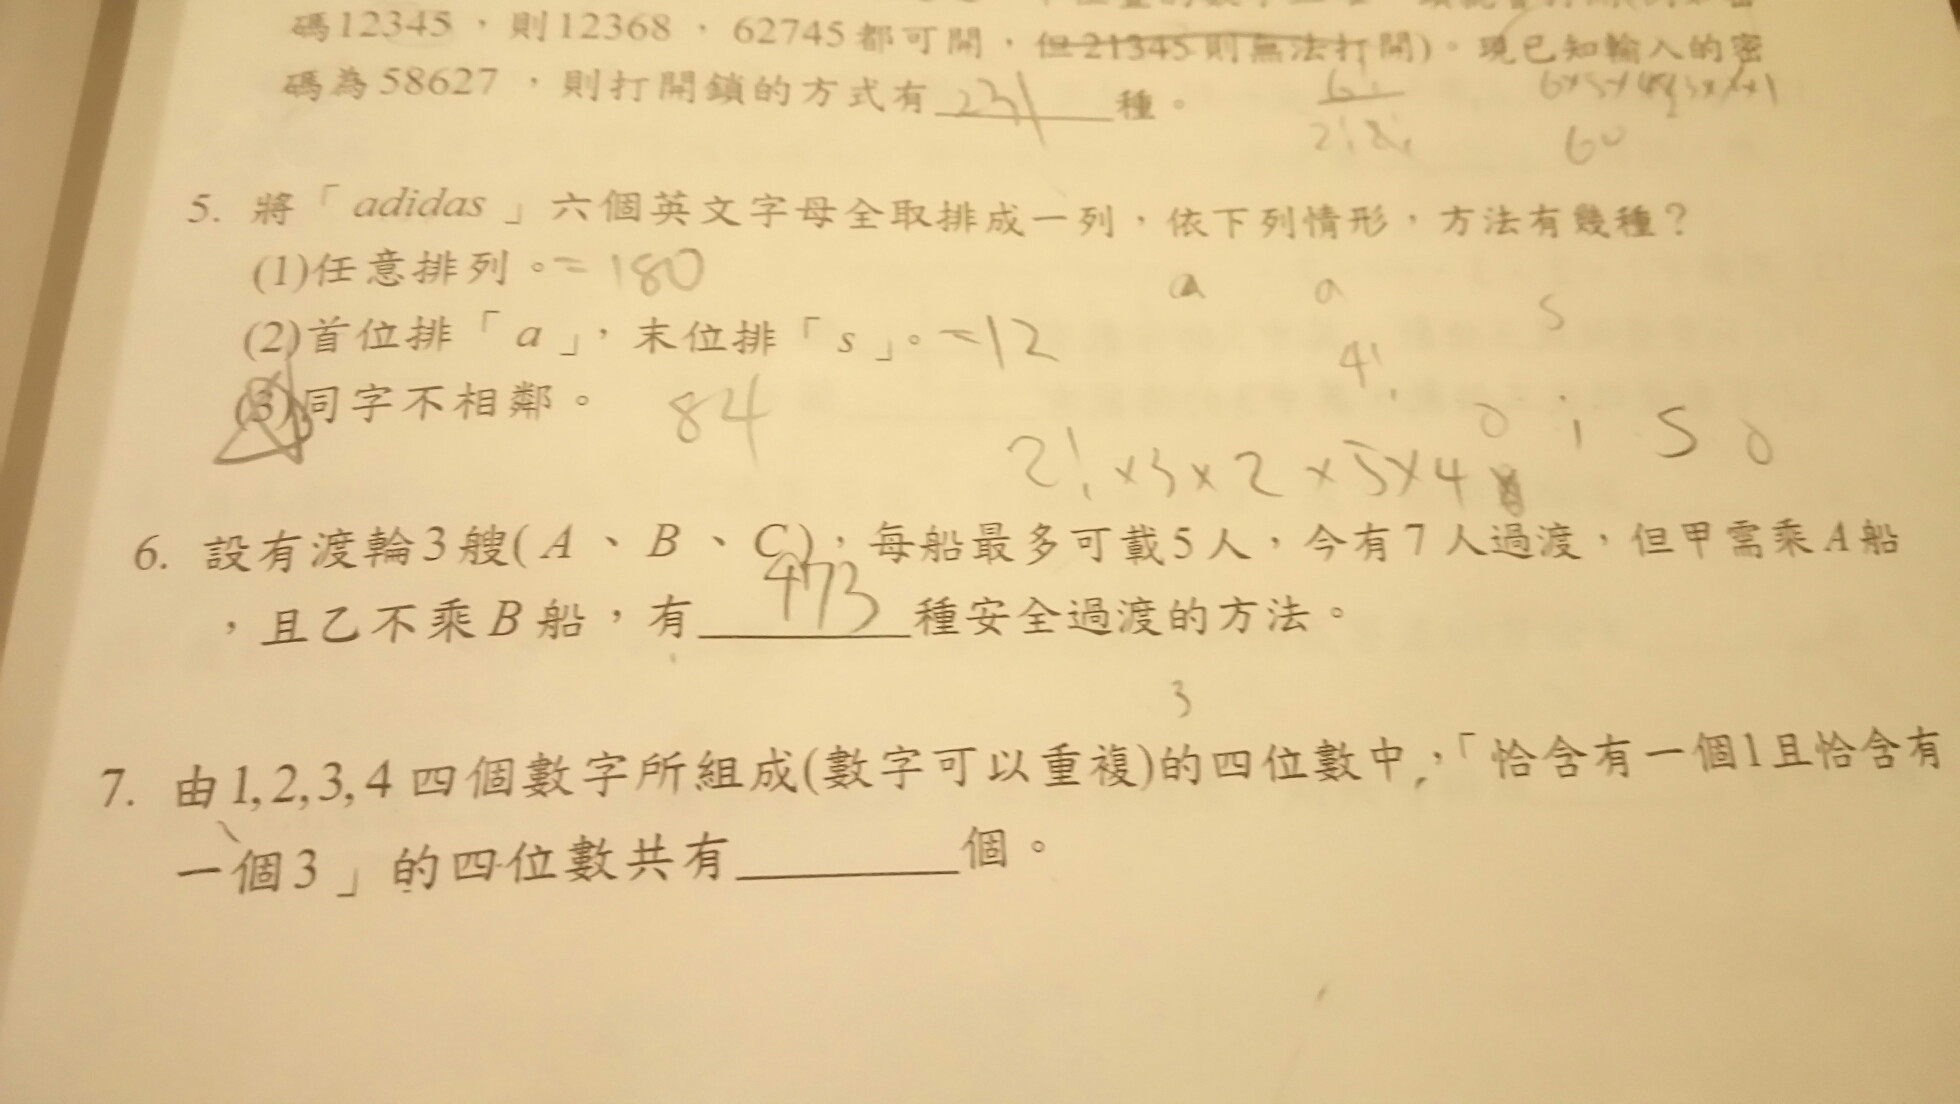 碼12345，則12368，62745都可開，但21345則無法打開)。現已知輸入的密
碼為58627，則打開鎖的方式有 231 種。
6!
2!2!
60
5. 將「adidas」六個英文字母全取排成一列，依下列情形，方法有幾種？
(1)任意排列。=180
a a s
(2)首位排「a」，末位排「s」。=12
4!
(3)同字不相鄰。 84
i s
2!×3×2×5×4
6. 設有渡輪3艘(A、B、C)，每船最多可載5人，今有7人過渡，但甲需乘A船
，且乙不乘B船，有 473 種安全過渡的方法。
3
7. 由1,2,3,4四個數字所組成(數字可以重複)的四位數中，「恰含有一個1且恰含有
一個3」的四位數共有________個。